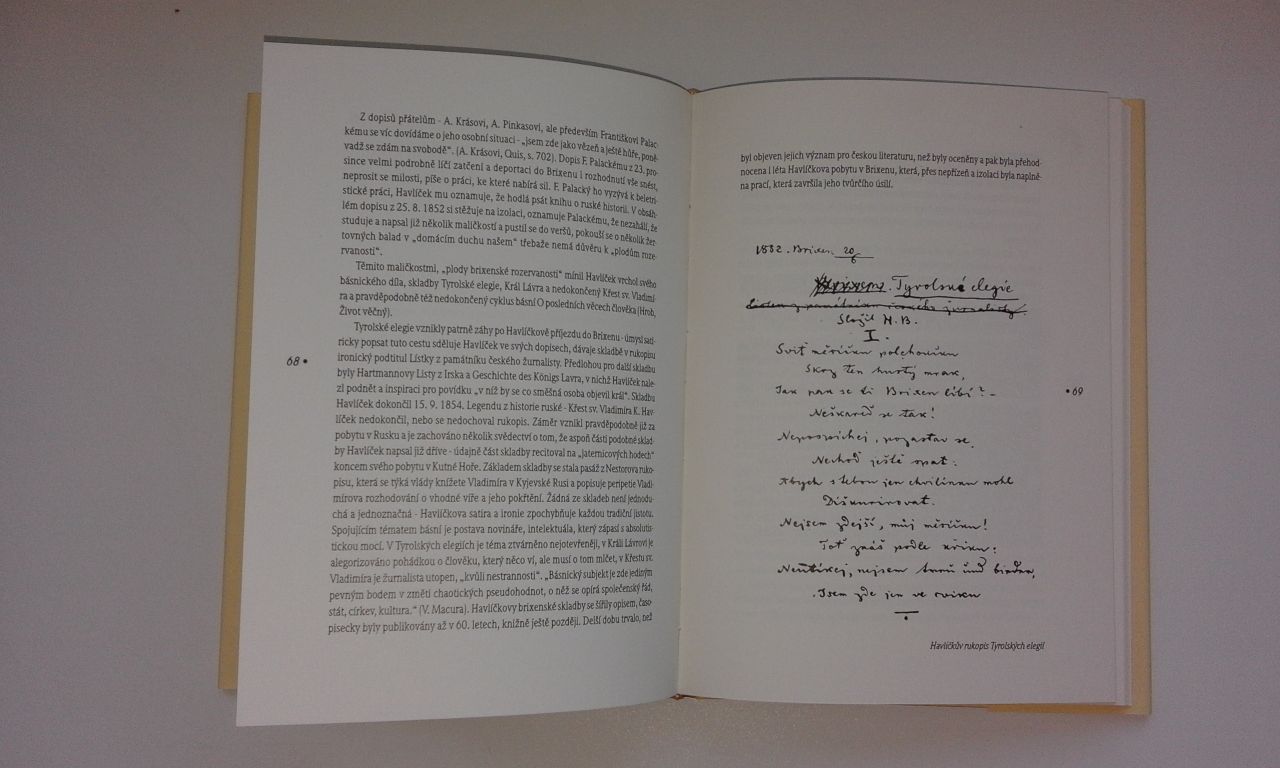 Z dopisů přátelům - A. Krásovi, A. Pinkasovi, ale především Františkovi Palac-
kému se víc dovídáme o jeho osobní situaci - „jsem zde jako vězeň a ještě hůře, poně-
vadž se zdám na svobodě“. (A. Krásovi, Quis, s. 702). Dopis F. Palackému z 23. pro-
since velmi podrobně líčí zatčení a deportaci do Brixenu i rozhodnutí vše snést,
neprosit se milosti, píše o práci, ke které nabírá sil. F. Palacký ho vyzývá k beletri-
stické práci, Havlíček mu oznamuje, že hodlá psát knihu o ruské historii. V obsáh-
lém dopisu z 25. 8. 1852 si stěžuje na izolaci, oznamuje Palackému, že nezahálí, že
studuje a napsal již několik maličkostí a pustil se do veršů, pokouší se o několik žer-
tovných balad v „domácím duchu našem“ třebaže nemá důvěru k „plodům roze-
rvanosti“.
Těmito maličkostmi, „plody brixenské rozervanosti“ mínil Havlíček vrchol svého
básnického díla, skladby Tyrolské elegie, Král Lávra a nedokončený Křest sv. Vladimí-
ra a pravděpodobně též nedokončený cyklus básní O posledních věcech člověka (Hrob,
Život věčný).
Tyrolské elegie vznikly patrně záhy po Havlíčkově příjezdu do Brixenu - úmysl sati-
ricky popsat tuto cestu sděluje Havlíček ve svých dopisech, dávaje skladbě v rukopisu
ironický podtitul Lístky z památníku českého žurnalisty. Předlohou pro další skladbu
byly Hartmannovy Listy z Irska a Geschichte des Königs Lavra, v nichž Havlíček nale-
zl podnět a inspiraci pro povídku „v níž by se co směšná osoba objevil král“. Skladbu
Havlíček dokončil 15. 9. 1854. Legendu z historie ruské - Křest sv. Vladimíra K. Hav-
líček nedokončil, nebo se nedochoval rukopis. Záměr vznikl pravděpodobně již za
pobytu v Rusku a je zachováno několik svědectví o tom, že aspoň části podobné sklad-
by Havlíček napsal již dříve - údajně část skladby recitoval na „jaternicových hodech“
koncem svého pobytu v Kutné Hoře. Základem skladby se stala pasáž z Nestorova ruko-
pisu, která se týká vlády knížete Vladimíra v Kyjevské Rusi a popisuje peripetie Vladi-
mírova rozhodování o vhodné víře a jeho pokřtění. Žádná ze skladeb není jednodu-
chá a jednoznačná - Havlíčkova satira a ironie zpochybňuje každou tradiční jistotu.
Spojujícím tématem básní je postava novináře, intelektuála, který zápasí s absolutis-
tickou mocí. V Tyrolských elegiích je téma ztvárněno nejotevřeněji, v Králi Lávrovi je
alegorizováno pohádkou o člověku, který něco ví, ale musí o tom mlčet, v Křestu sv.
Vladimíra je žurnalista utopen, „kvůli nestrannosti“. „Básnický subjekt je zde jediným
pevným bodem v změti chaotických pseudohodnot, o něž se opírá společenský řád,
stát, církev, kultura.“ (V. Macura). Havlíčkovy brixenské skladby se šířily opisem, časo-
pisecky byly publikovány až v 60. letech, knižně ještě později. Delší dobu trvalo, než
68 •
byl objeven jejich význam pro českou literaturu, než byly oceněny a pak byla přehod-
nocena i léta Havlíčkova pobytu v Brixenu, která, přes nepřízeň a izolaci byla naplně-
na prací, která završila jeho tvůrčího úsilí.
1852. Brixen 20/6
Tyrolské elegie
Složil H. B.
I.
Sviť měsíčku polehoučku
Skrz ten hustý mrak,
Jak pak se ti Brixen líbí? -
Neškareď se tak!
Nepospíchej, pozastav se,
Nechoď ještě spat:
Abych s tebou jen chvilinku mohl
Diškurirovat.
Nejsem zdejší, můj měsíčku!
Toť znáš podle křiku:
Neutíkej, nejsem treu und bieder,
Jsem zde jen ve cviku
• 69
Havlíčkův rukopis Tyrolských elegií